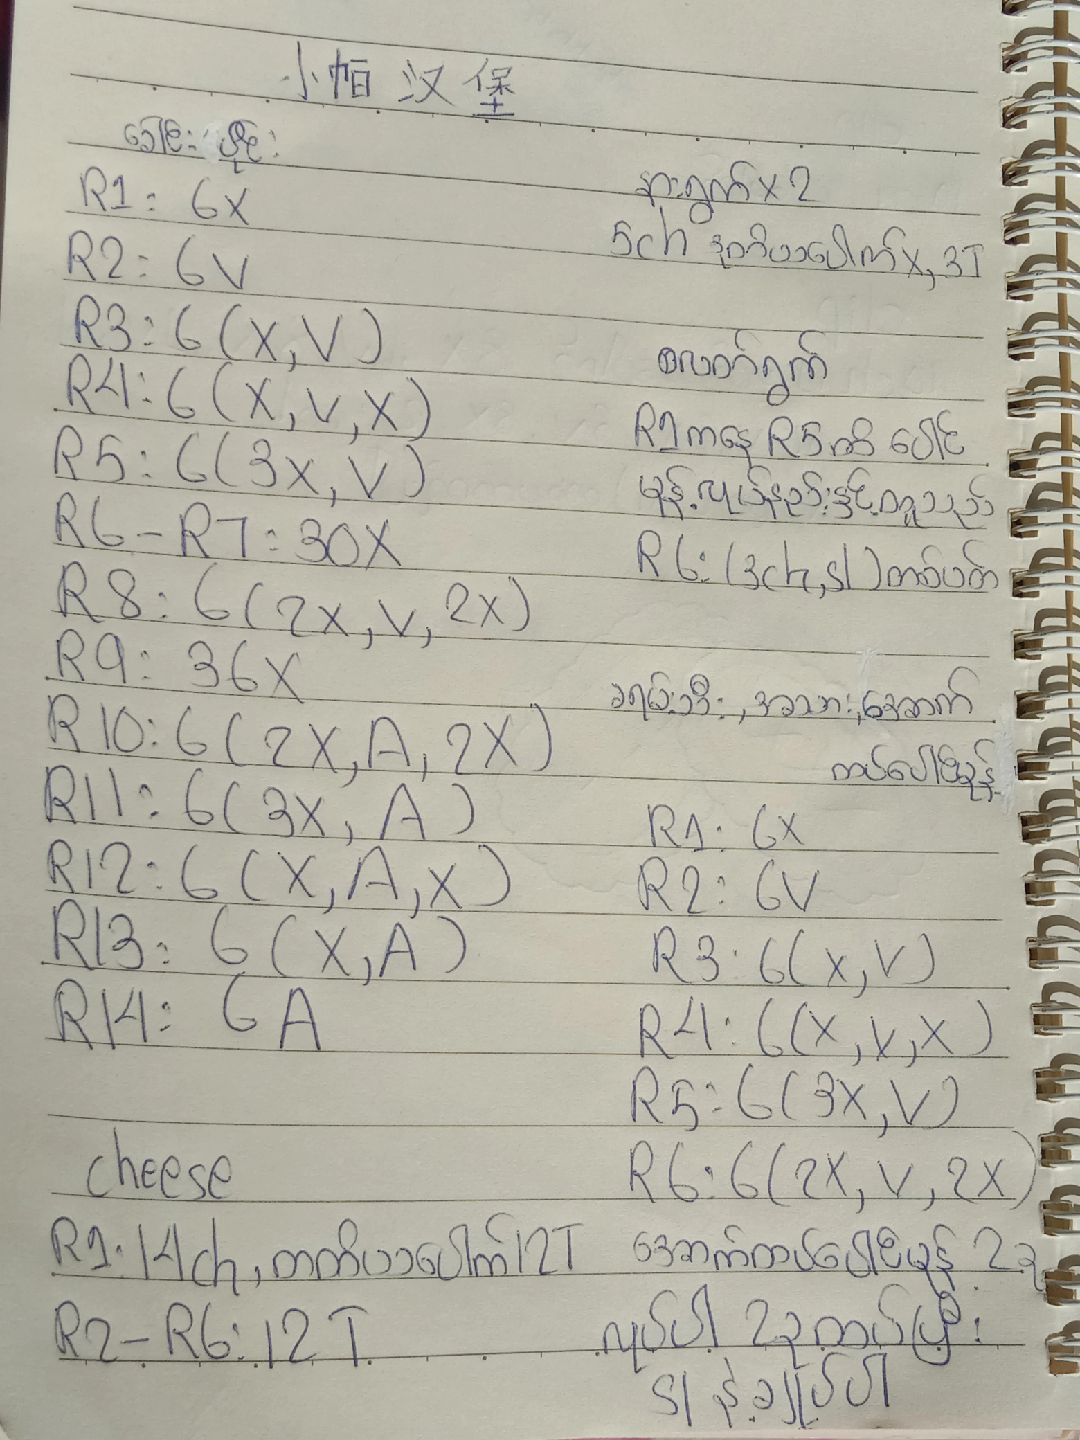 小帕汉堡
ခေါင်းပိုင်း
R1: 6X
R2: 6V
R3: 6(X,V)
R4: 6(X,V,X)
R5: 6(3X,V)
R6-R7: 30X
R8: 6(2X,V,2X)
R9: 36X
R10: 6(2X,A,2X)
R11: 6(3X,A)
R12: 6(X,A,X)
R13: 6(X,A)
R14: 6A
cheese
R1: 14ch, တတိယပေါက် 12T
R2-R6: 12T
နားရွက် x 2
5ch ဒုတိယပေါက် X, 3T
စလတ်ရွက်
R1 ကနေ R5 ထိ ပေါင်
မုန့် လုပ်နည်းနှင့် တူသည်
R6: (3ch, sl) တစ်ပတ်
ခရမ်းသီး, အသား, အောက်
ထပ်ပေါင်မုန့်
R1: 6X
R2: 6V
R3: 6(X,V)
R4: 6(X,V,X)
R5: 6(3X,V)
R6: 6(2X,V,2X)
အောက်ထပ်ပေါင်မုန့် 2ခု
လုပ်ပါ 2ခုထပ်ပြီး
sl နဲ့ချုပ်ပါ